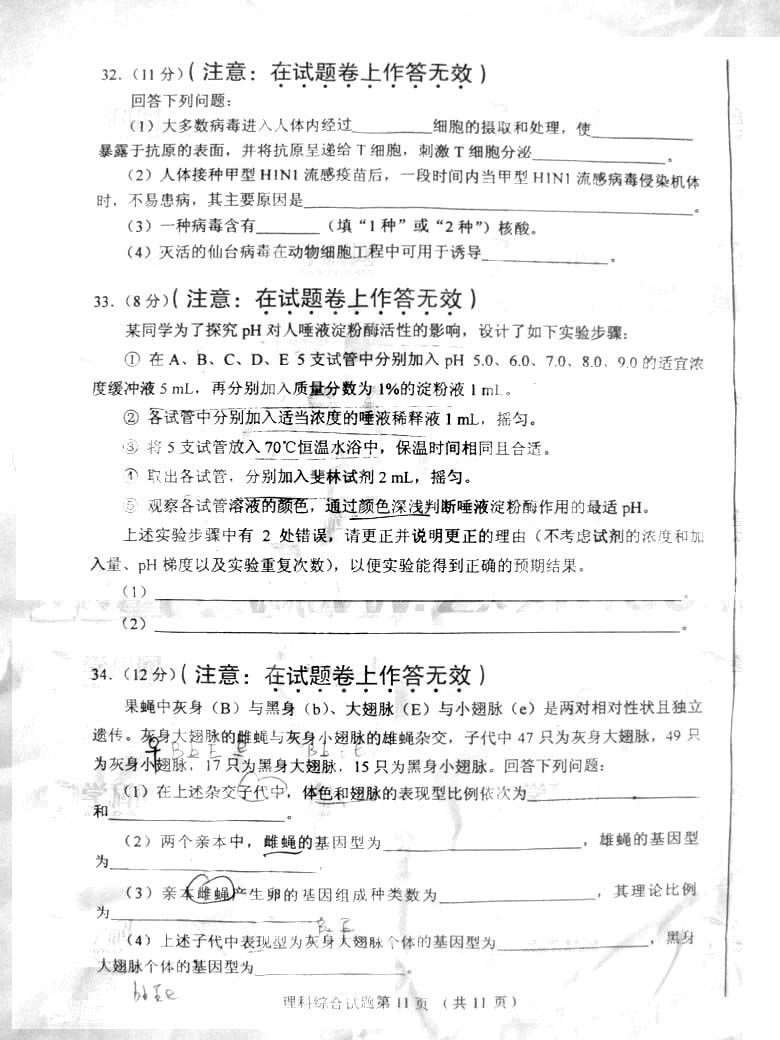 32.（11分）(注意：在试题卷上作答无效)
回答下列问题：
（1）大多数病毒进入人体内经过________细胞的摄取和处理，使________
暴露于抗原的表面，并将抗原呈递给T细胞，刺激T细胞分泌________。
（2）人体接种甲型H1N1流感疫苗后，一段时间内当甲型H1N1流感病毒侵染机体
时，不易患病，其主要原因是________。
（3）一种病毒含有________（填“1种”或“2种”）核酸。
（4）灭活的仙台病毒在动物细胞工程中可用于诱导________。
33.（8分）(注意：在试题卷上作答无效)
某同学为了探究pH对人唾液淀粉酶活性的影响，设计了如下实验步骤：
① 在A、B、C、D、E 5支试管中分别加入pH 5.0、6.0、7.0、8.0、9.0的适宜浓
度缓冲液5 mL，再分别加入质量分数为1%的淀粉液1 mL。
② 各试管中分别加入适当浓度的唾液稀释液1 mL，摇匀。
③ 将5支试管放入70℃恒温水浴中，保温时间相同且合适。
④ 取出各试管，分别加入斐林试剂2 mL，摇匀。
⑤ 观察各试管溶液的颜色，通过颜色深浅判断唾液淀粉酶作用的最适pH。
上述实验步骤中有 2 处错误，请更正并说明更正的理由（不考虑试剂的浓度和加
入量、pH梯度以及实验重复次数），以便实验能得到正确的预期结果。
（1）________。
（2）________。
34.（12分）(注意：在试题卷上作答无效)
果蝇中灰身（B）与黑身（b）、大翅脉（E）与小翅脉（e）是两对相对性状且独立
遗传。灰身大翅脉的雌蝇与灰身小翅脉的雄蝇杂交，子代中47只为灰身大翅脉，49只
为灰身小翅脉，17只为黑身大翅脉，15只为黑身小翅脉。回答下列问题：
（1）在上述杂交子代中，体色和翅脉的表现型比例依次为________
和________。
（2）两个亲本中，雌蝇的基因型为________，雄蝇的基因型
为________。
（3）亲本雌蝇产生卵的基因组成种类数为________，其理论比例
为________。
B E
（4）上述子代中表现型为灰身大翅脉个体的基因型为________，黑身
大翅脉个体的基因型为________。
bb Ee
理科综合试题第11页 （共11页）